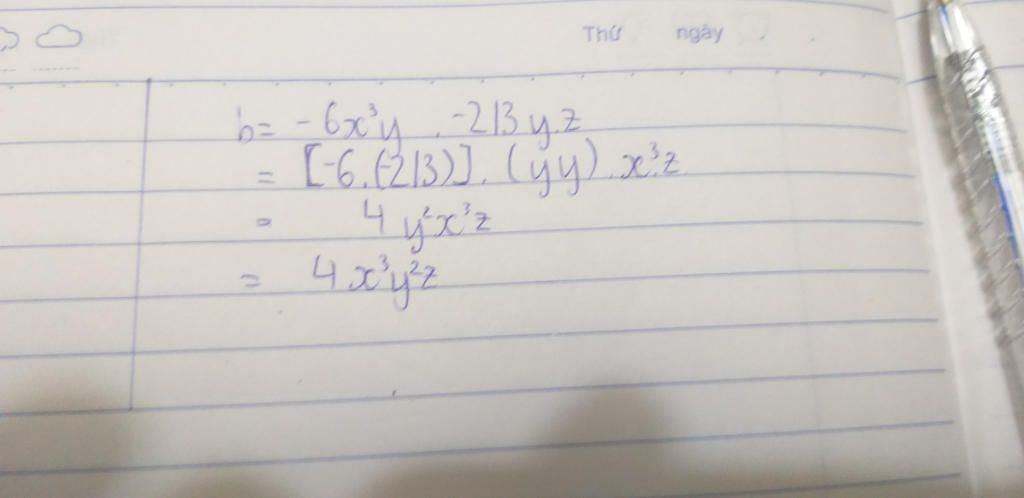 Thứ ngày
b= -6x³y . -2/3 y.z
= [-6.(-2/3)]. (yy) . x³.z
= 4 y²x³z
= 4x³y²z